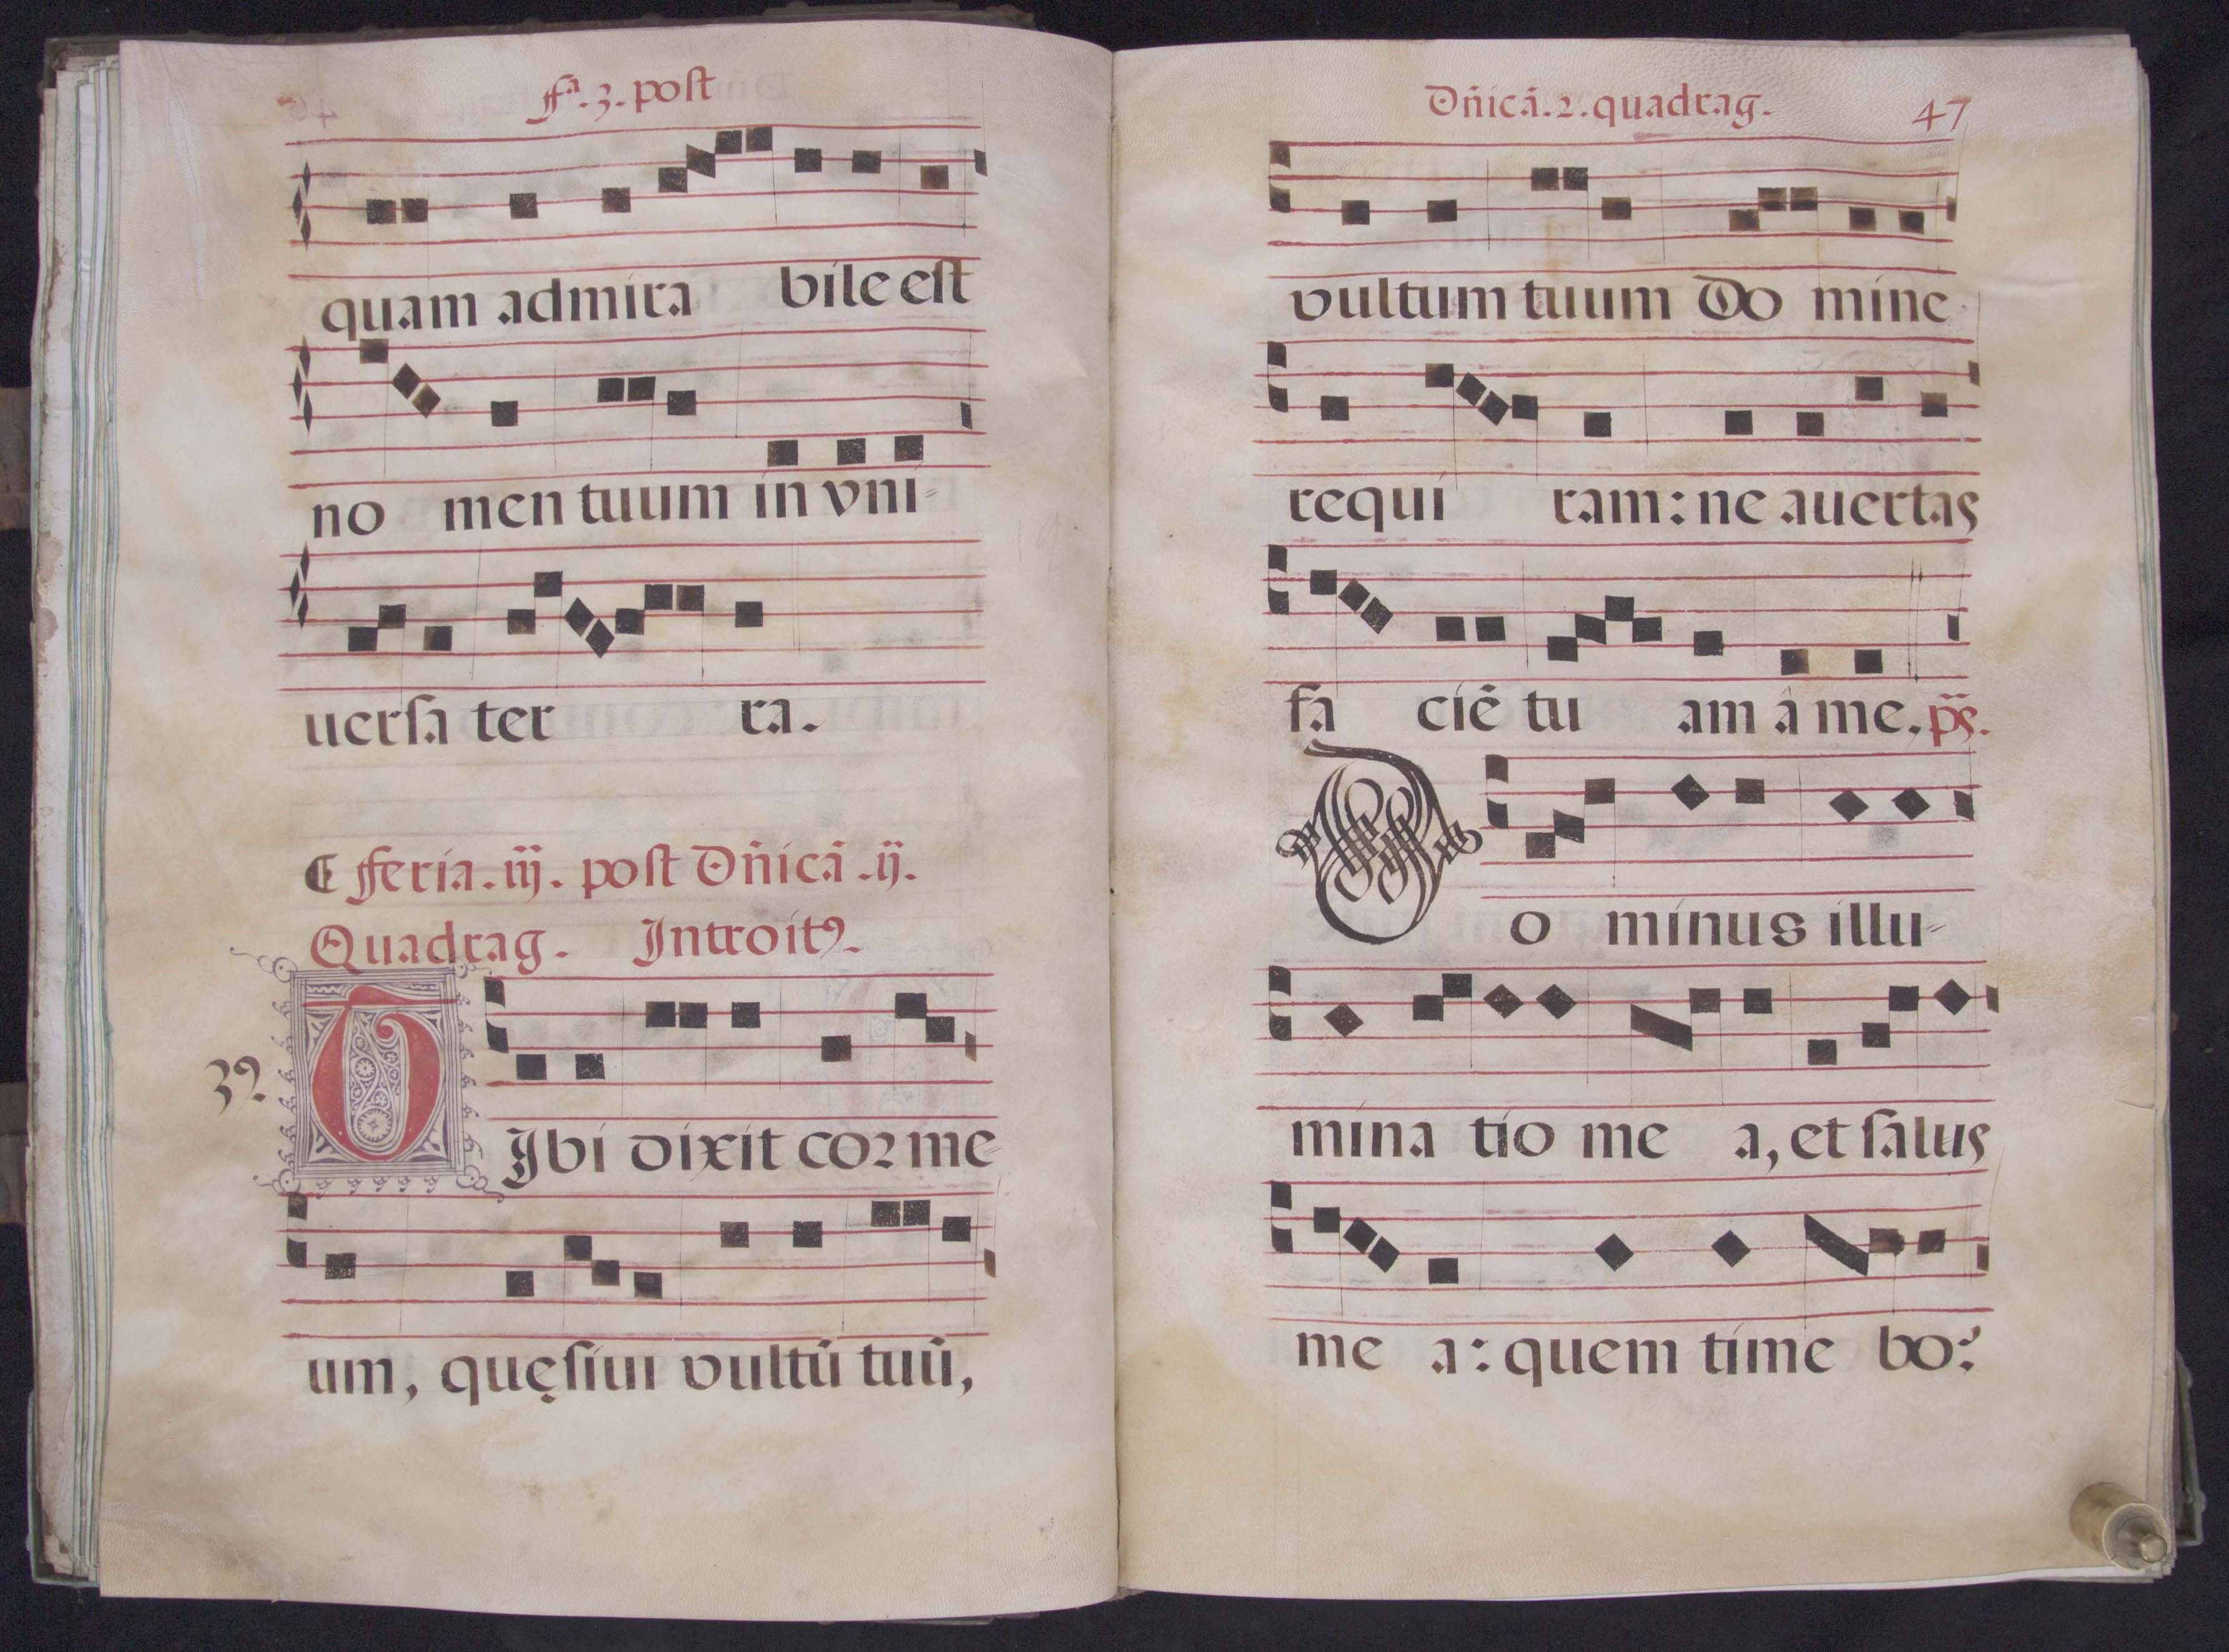 ffª. 3. post
quam admira bile est
no men tuum in vni-
uersa ter ra.
¶ fferia. iij. post Dñicã .ij.
Quadrag. Introitꝰ.
39.
TJbi dixit cor me-
um, quęsiui vultũ tuũ,
Dñicã. 2. quadrag. 47
vultum tuum Do mine
requi ram: ne auertas
fa ciẽ tu am â me. ps.
Do minus illu-
mina tio me a, et salus
me a: quem time bo?